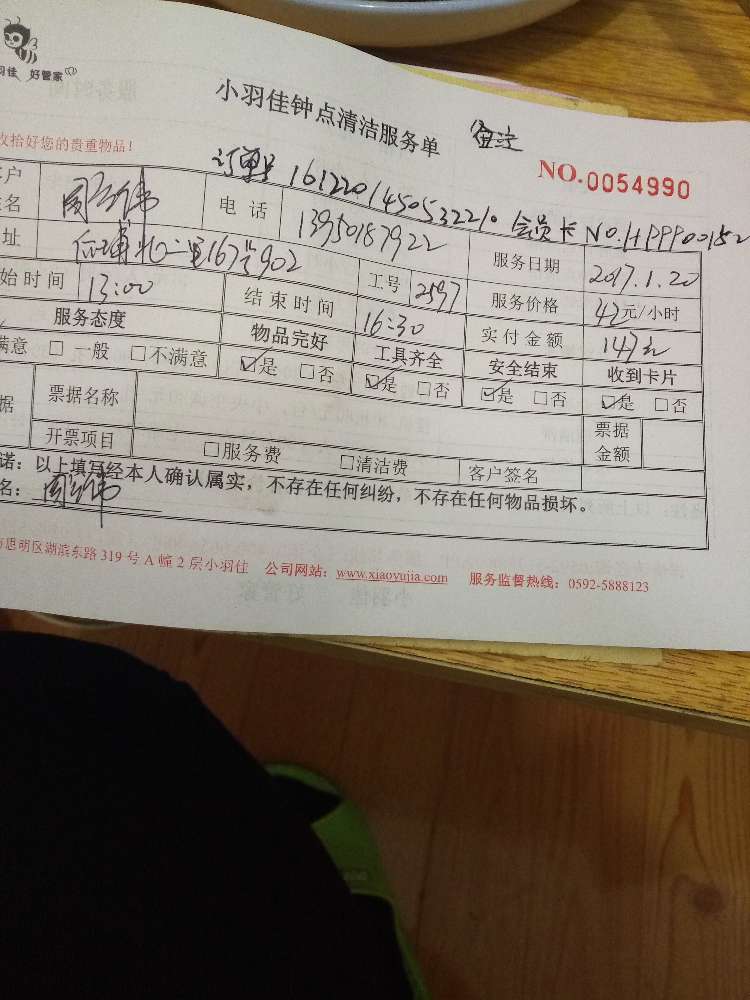 羽佳 好管家
小羽佳钟点清洁服务单 备注
收拾好您的贵重物品!
NO.0054990
订单号 1612201450532210 会员卡 NO.HPPP00152
户 名 电话 13950187922 服务日期 2017.1.20
址 后埔北二里167号902 工号 2597 服务价格 42元/小时
始时间 13:00 结束时间 16:30 实付金额 147元
服务态度 物品完好 工具齐全 安全结束 收到卡片
满意 □ 一般 □不满意 ☑是 □否 ☑是 □否 ☑是 □否 ☑是 □否
据 票据名称 票据金额
开票项目 □服务费 □清洁费 客户签名
诺：以上填写经本人确认属实，不存在任何纠纷，不存在任何物品损坏。
名：
思明区湖滨东路 319 号 A 幢 2 层小羽佳 公司网站：www.xiaoyujia.com 服务监督热线：0592-5888123